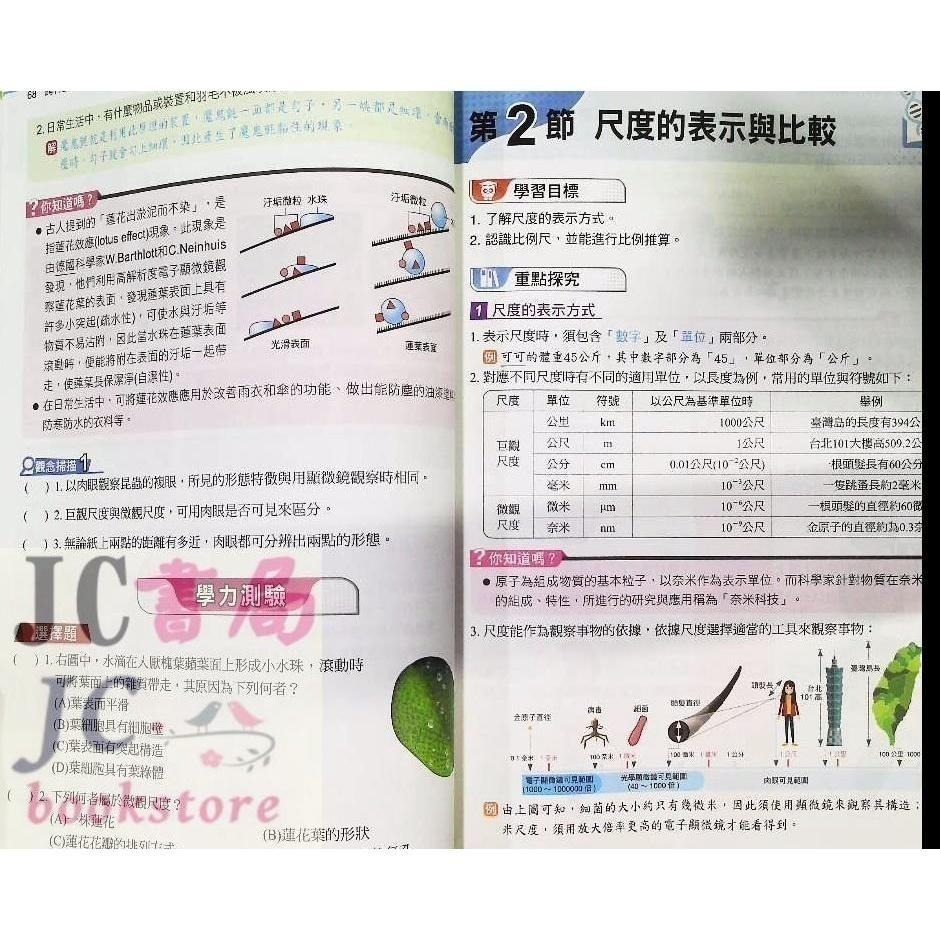 68
2. 日常生活中，有什麼物品或裝置和羽毛不被
解 魔鬼氈就是利用此原理的裝置，魔鬼氈一面都是勾子，另一端都是細環，當兩
璧時，勾子就會勾上細環，因此產生了魔鬼氈黏性的現象。
?你知道嗎？
● 古人提到的「蓮花出淤泥而不染」，是
指蓮花效應(lotus effect)現象。此現象是
由德國科學家W.Barthlott和C.Neinhuis
發現，他們利用高解析度電子顯微鏡觀
察蓮花葉的表面，發現蓮葉表面上具有
許多小突起(疏水性)，可使水與汙垢等
物質不易沾附，因此當水珠在蓮葉表面
滾動時，便能將附在表面的汙垢一起帶
走，使蓮葉長保潔淨(自潔性)。
● 在日常生活中，可將蓮花效應應用於改善雨衣和傘的功能、做出能防塵的油漆塗
防寒防水的衣料等。
汙垢微粒 水珠
汙垢微粒
光滑表面
蓮葉表面
觀念掃描1
( ) 1. 以肉眼觀察昆蟲的複眼，所見的形態特徵與用顯微鏡觀察時相同。
( ) 2. 巨觀尺度與微觀尺度，可用肉眼是否可見來區分。
( ) 3. 無論紙上兩點的距離有多近，肉眼都可分辨出兩點的形態。
學力測驗
選擇題
( ) 1. 右圖中，水滴在人厭槐葉蘋葉面上形成小水珠，滾動時
可將葉面上的雜質帶走，其原因為下列何者？
(A)葉表面平滑
(B)葉細胞具有細胞壁
(C)葉表面有突起構造
(D)葉細胞具有葉綠體
( ) 2. 下列何者屬於微觀尺度？
(A)一株蓮花
(B)蓮花葉的形狀
(C)蓮花花瓣的排列方式
JC書局
JC
bookstore
第2節 尺度的表示與比較
學習目標
1. 了解尺度的表示方式。
2. 認識比例尺，並能進行比例推算。
重點探究
1 尺度的表示方式
1. 表示尺度時，須包含「數字」及「單位」兩部分。
例 可可的體重45公斤，其中數字部分為「45」，單位部分為「公斤」。
2. 對應不同尺度時有不同的適用單位，以長度為例，常用的單位與符號如下：
尺度 單位 符號 以公尺為基準單位時 舉例
巨觀尺度 公里 km 1000公尺 臺灣島的長度有394公
公尺 m 1公尺 台北101大樓高509.2公
公分 cm 0.01公尺(10⁻²公尺) 一根頭髮長有60公分
毫米 mm 10⁻³公尺 一隻跳蚤長約2毫米
微觀尺度 微米 μm 10⁻⁶公尺 一根頭髮的直徑約60微
奈米 nm 10⁻⁹公尺 金原子的直徑約為0.3奈
?你知道嗎？
● 原子為組成物質的基本粒子，以奈米作為表示單位。而科學家針對物質在奈米
的組成、特性，所進行的研究與應用稱為「奈米科技」。
3. 尺度能作為觀察事物的依據，依據尺度選擇適當的工具來觀察事物：
金原子直徑
病毒
細菌
頭髮直徑
頭髮長
台北101高
臺灣島長
0.1奈米 1奈米 100奈米 1微米 100微米 1毫米 1公分 1公尺 1公里 100公里 1000
電子顯微鏡可見範圍
(1000～1000000倍)
光學顯微鏡可見範圍
(40～1000倍)
肉眼可見範圍
例 由上圖可知，細菌的大小約只有幾微米，因此須使用顯微鏡來觀察其構造；
米尺度，須用放大倍率更高的電子顯微鏡才能看得到。